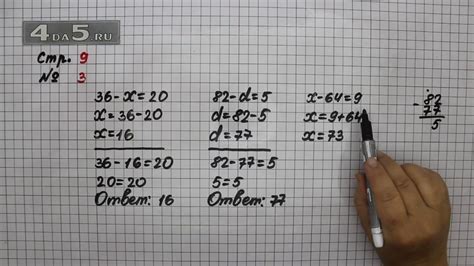 4DA5.RU
Стр. 9
№ 3
36-x=20
x=36-20
x=16
36-16=20
20=20
Ответ: 16
82-d=5
d=82-5
d=77
82-77=5
5=5
Ответ: 77
x-64=9
x=9+64
x=73
-82
77
5